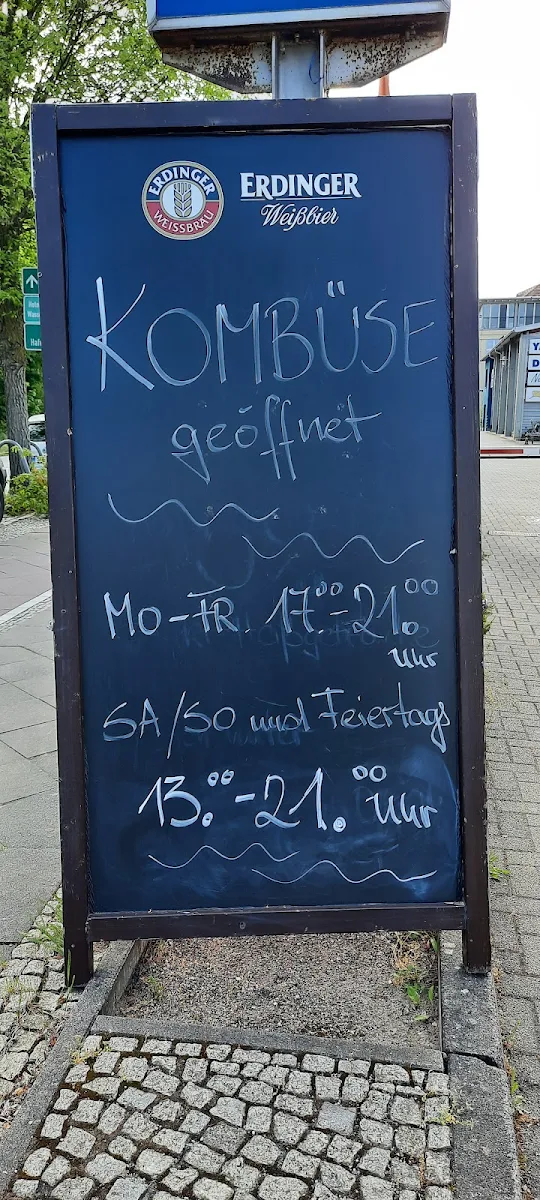 ERDINGER
WEISSBRÄU
ERDINGER
Weißbier
KOMBÜSE
geöffnet
MO-FR. 17.00-21.00
Uhr
SA/SO und Feiertags
13.00-21.00 Uhr